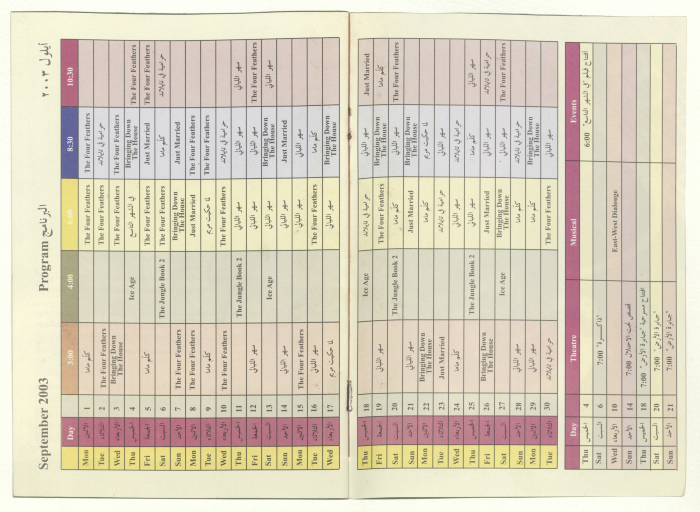 September 2003 Program البرنامج أيلول ٢٠٠٣
Day 3:00 4:00 8:30 10:30
Mon الاثنين 1 كلّو ماما The Four Feathers The Four Feathers
Tue الثلاثاء 2 The Four Feathers The Four Feathers حرامية في تايلاند
Wed الأربعاء 3 Bringing Down The House The Four Feathers The Four Feathers
Thu الخميس 4 Ice Age في الشهر التاسع Bringing Down The House The Four Feathers
Fri الجمعة 5 كلّو ماما The Four Feathers Just Married The Four Feathers
Sat السبت 6 The Jungle Book 2 The Four Feathers كلّو ماما حرامية في تايلاند
Sun الأحد 7 The Four Feathers Bringing Down The House Just Married
Mon الاثنين 8 The Four Feathers Just Married The Four Feathers
Tue الثلاثاء 9 كلّو ماما لما حكيت مريم The Four Feathers
Wed الأربعاء 10 The Four Feathers The Four Feathers حرامية في تايلاند
Thu الخميس 11 The Jungle Book 2 سهر الليالي سهر الليالي سهر الليالي
Fri الجمعة 12 سهر الليالي سهر الليالي سهر الليالي The Four Feathers
Sat السبت 13 Ice Age سهر الليالي Bringing Down The House سهر الليالي
Sun الأحد 14 سهر الليالي سهر الليالي Just Married
Mon الاثنين 15 The Four Feathers سهر الليالي سهر الليالي
Tue الثلاثاء 16 سهر الليالي The Four Feathers كلّو ماما
Wed الأربعاء 17 لما حكيت مريم سهر الليالي Bringing Down The House
Thu الخميس 18 Ice Age حرامية في تايلاند سهر الليالي Just Married
Fri الجمعة 19 سهر الليالي The Four Feathers Bringing Down The House كلّو ماما
Sat السبت 20 The Jungle Book 2 كلّو ماما سهر الليالي The Four Feathers
Sun الأحد 21 سهر الليالي Just Married Bringing Down The House
Mon الاثنين 22 Bringing Down The House كلّو ماما لما حكيت مريم
Tue الثلاثاء 23 Just Married حرامية في تايلاند سهر الليالي
Wed الأربعاء 24 كلّو ماما سهر الليالي حرامية في تايلاند
Thu الخميس 25 The Jungle Book 2 سهر الليالي كلّو ماما سهر الليالي
Fri الجمعة 26 Bringing Down The House Just Married سهر الليالي حرامية في تايلاند
Sat السبت 27 Ice Age Bringing Down The House سهر الليالي The Four Feathers
Sun الأحد 28 سهر الليالي كلّو ماما حرامية في تايلاند
Mon الاثنين 29 سهر الليالي كلّو ماما Bringing Down The House
Tue الثلاثاء 30 حرامية في تايلاند The Four Feathers سهر الليالي
Day Theatre Musical Events
Thu الخميس 4 6:00 افتتاح فيلم "في الشهر التاسع"
Sat السبت 6 7:00 "ذاكـــرة"
Wed الأربعاء 10 East-West Dialouge
Sun الأحد 14 7:00 قصص تحت الاحتلال
Thu الخميس 18 7:00 افتتاح مسرحية "جدارية الأرض"
Sat السبت 20 7:00 "جدارية الأرض"
Sun الأحد 21 7:00 "جدارية الأرض"